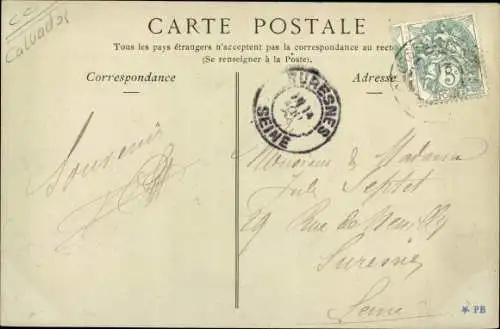 CC
Calvados
CARTE POSTALE
Tous les pays étrangers n'acceptent pas la correspondance au recto
(Se renseigner à la Poste).
Correspondance
Adresse
SURESNES
SEINE
5
Souvenirs
Monsieur & Madame
Jules Septet
29 Rue de Neuilly
Suresnes
Seine
* PB